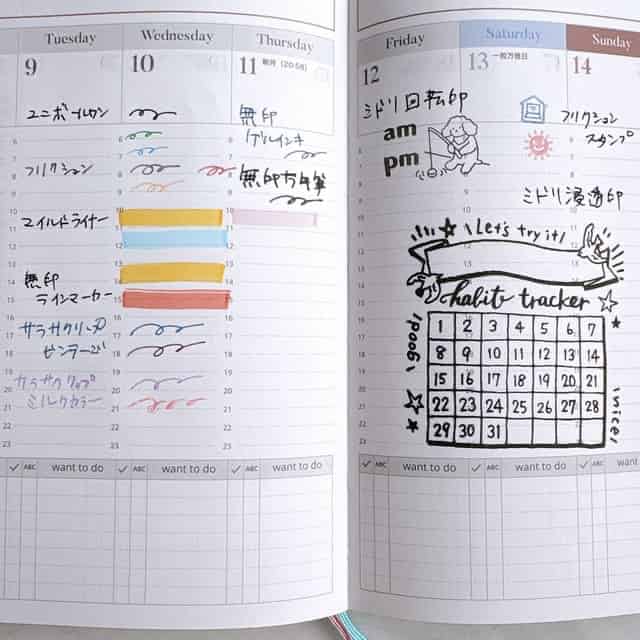 Tuesday
Wednesday
Thursday
9
10
11
ユニボールワン
無印
ゲルインキ
フリクション
無印万年筆
マイルドライナー
無印
ラインマーカー
サラサクリップ
ビンテージ
サラサクリップ
ミルクカラー
6
7
8
9
10
11
12
13
14
15
16
17
18
19
20
21
22
23
✓ ABC want to do
✓ ABC want to do
✓ ABC want to do
Friday
Saturday
Sunday
12
13 一粒万倍日
14
ミドリ回転印
am
pm
フリクション
スタンプ
ミドリ浸透印
Let's try it!
habit tracker
good!
nice!
1 2 3 4 5 6 7
8 9 10 11 12 13 14
15 16 17 18 19 20 21
22 23 24 25 26 27 28
29 30 31
want to do
✓ ABC want to do
✓ ABC want